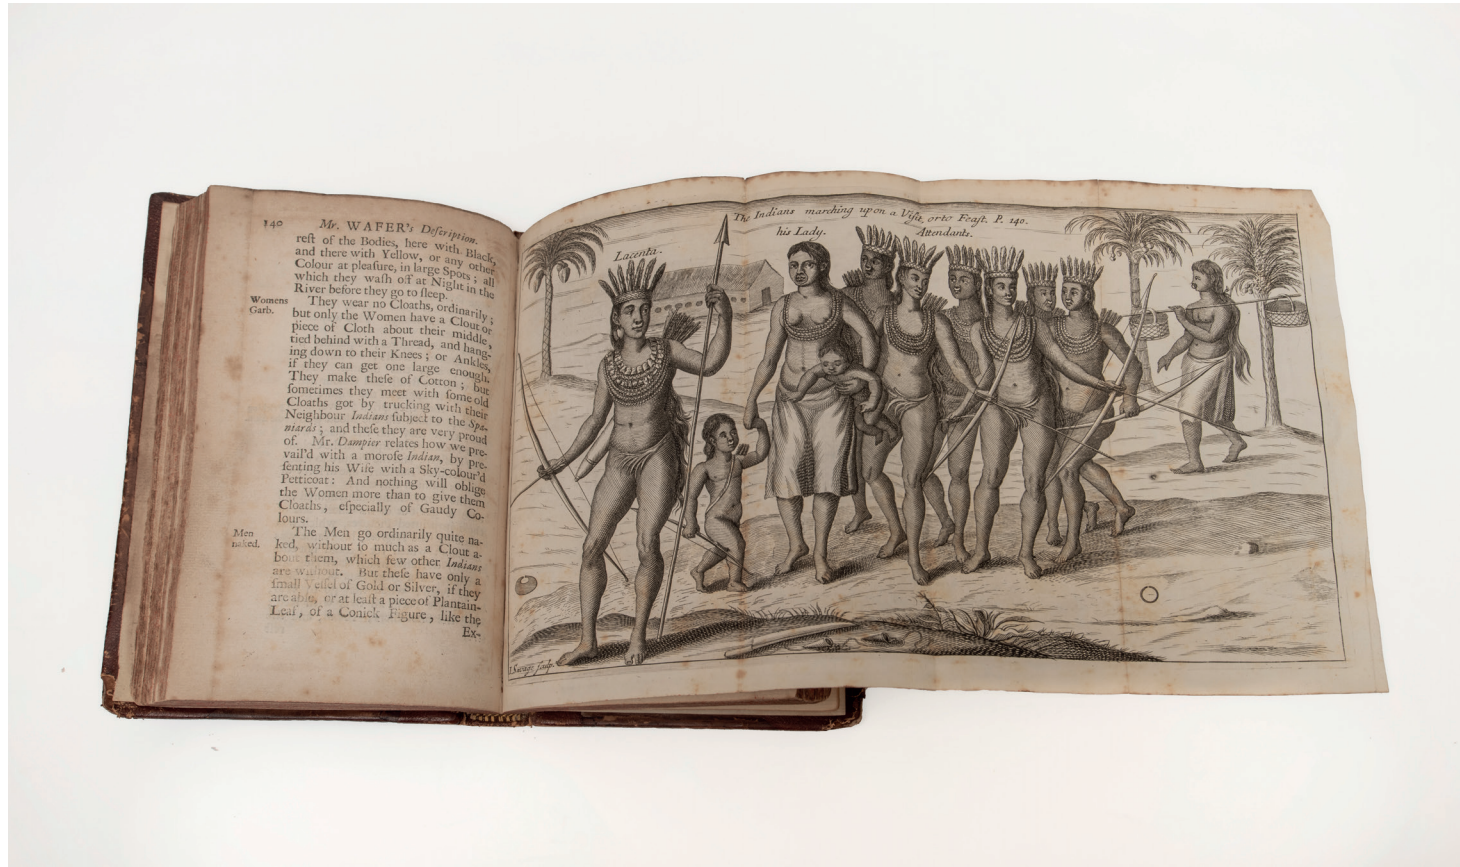 140 Mr. WAFER's Deſcription.
reſt of the Bodies, here with Black,
and there with Yellow, or any other
Colour at pleaſure, in large Spots; all
which they waſh off at Night in the
River before they go to ſleep.
Womens
Garb.
They wear no Cloaths, ordinarily;
but only the Women have a Clout or
piece of Cloth about their middle,
tied behind with a Thread, and hang-
ing down to their Knees; or Ankles,
if they can get one large enough.
They make theſe of Cotton; but
ſometimes they meet with ſome old
Cloaths got by trucking with their
Neighbour Indians ſubject to the Spa-
niards; and theſe they are very proud
of. Mr. Dampier relates how we pre-
vail'd with a moroſe Indian, by pre-
ſenting his Wife with a Sky-colour'd
Petticoat: And nothing will oblige
the Women more than to give them
Cloaths, eſpecially of Gaudy Co-
lours.
Men
naked.
The Men go ordinarily quite na-
ked, without ſo much as a Clout a-
bout them, which few other Indians
are without. But theſe have only a
ſmall Veſſel of Gold or Silver, if they
are able, or at leaſt a piece of Plantain-
Leaf, of a Conick Figure, like the
Ex-
The Indians marching upon a Viſit, or to Feaſt. P. 140.
Lacenta.
his Lady.
Attendants.
I Savage ſculp.